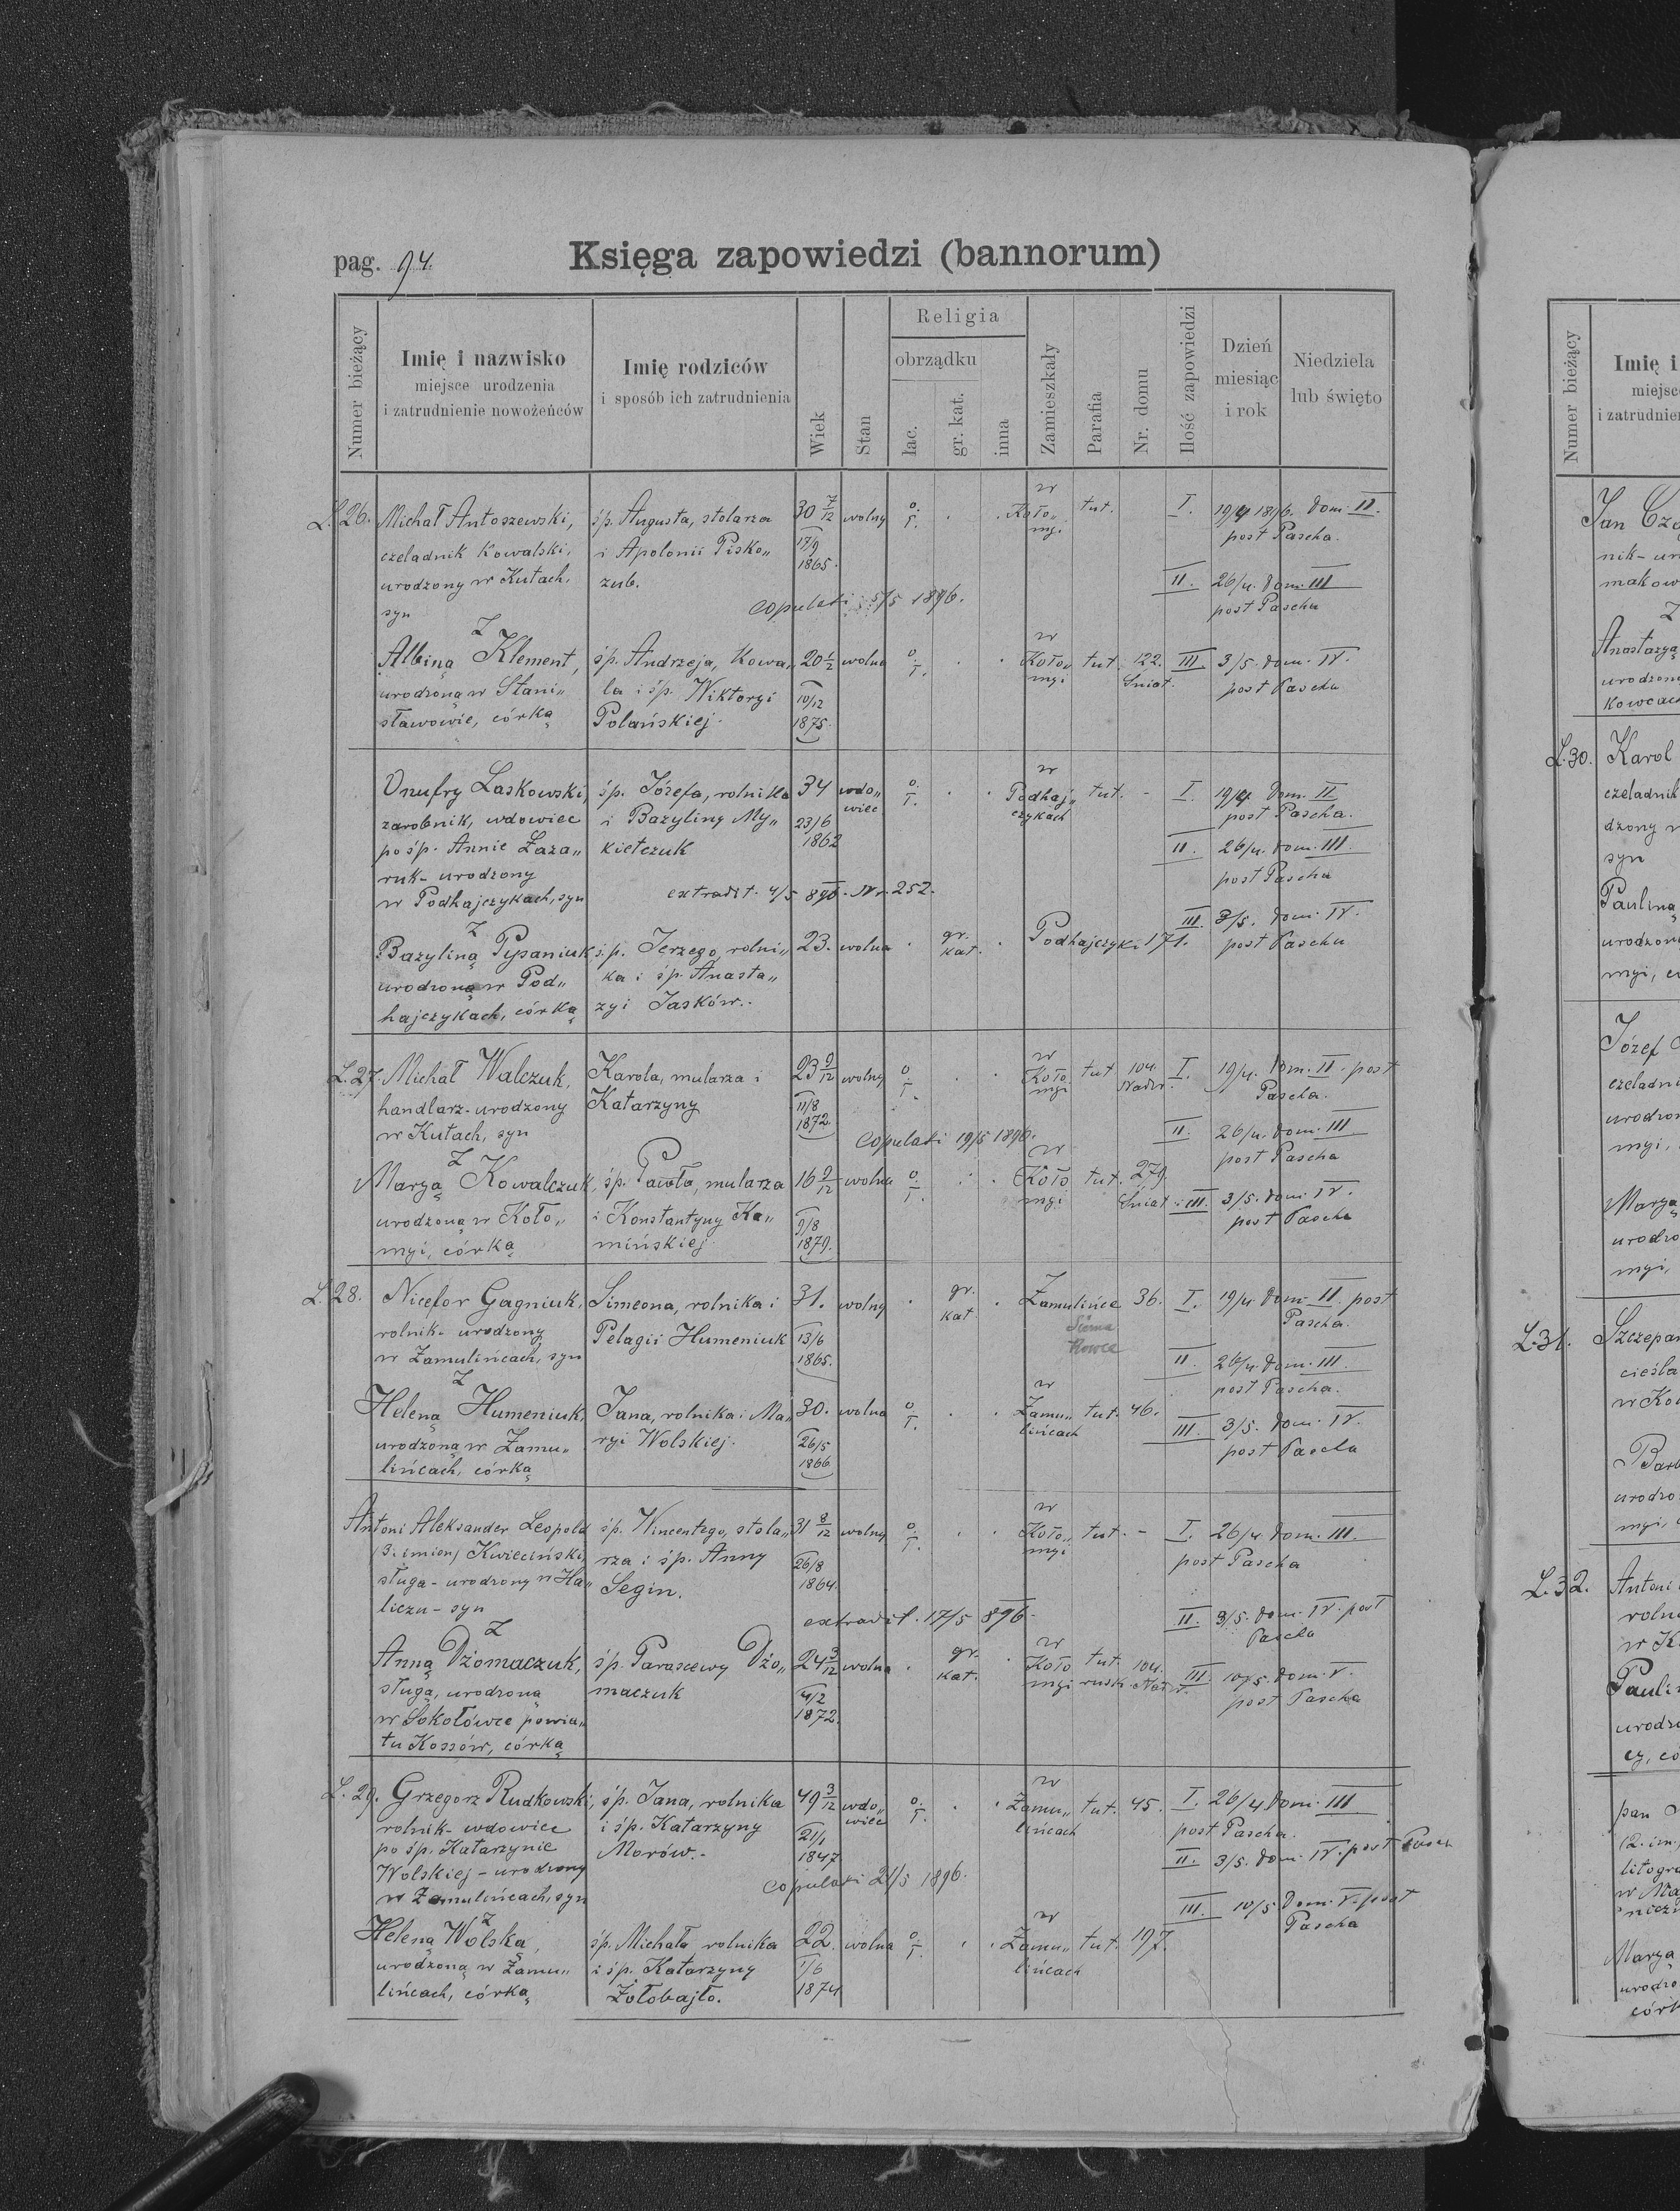 pag. 94.
Księga zapowiedzi (bannorum)
Numer bieżący
Imię i nazwisko
miejsce urodzenia
i zatrudnienie nowożeńców
Imię rodziców
i sposób ich zatrudnienia
Wiek
Stan
Religia
obrządku
łac.
gr. kat.
inna
Zamieszkały
Parafia
Nr. domu
Ilość zapowiedzi
Dzień
miesiąc
i rok
Niedziela
lub święto
L. 26. Michał Antoszewski,
czeladnik kowalski,
urodzony w Kutach,
syn
z
śp. Augusta, stolarza
i Apolonii Pisko„
zub.
30 7/12
17/9
1865.
wolny
o. ł.
w Koło„
myi.
tut.
I. 19/4 1896. Dom. II.
post Pascha.
II. 26/4. Dom. III
post Pascha
copulati 5/5 1896.
Albiną Klement,
urodzoną w Stani„
sławowie, córką
śp. Andrzeja, kowa„
la i śp. Wiktoryi
Polańskiej.
20 1/2
10/12
1875.
wolna
o. ł.
w Koło„
myi
tut.
122.
Śniat.
III 3/5. Dom. IV.
post Pascha
Onufry Laskowski,
zarobnik, wdowiec
po śp. Annie Łaza„
ruk - urodzony
w Podhajczykach, syn
z
śp. Józefa, rolnika
i Bazyliny My„
kietczuk
34
23/6
1862
wdo„
wiec
o. ł.
w
Podhaj„
czykach
tut. -
I. 19/4 Dom. II
post Pascha.
II. 26/4. Dom. III.
post Pascha
extradit. 4/5 896. Nr. 252.
III 3/5. Dom. IV.
post Pascha
Bazyliną Pysaniuk,
urodzoną w Pod„
hajczykach, córką
śp. Jerzego, rolni„
ka i śp. Anasta„
zyi Jasków.
23. wolna
gr.
kat.
Podhajczyki 171.
L. 27. Michał Walczuk,
handlarz - urodzony
w Kutach, syn
z
Karola, mularza i
Katarzyny
23 9/12
11/8
1872
wolny
o ł.
w
Koło
myi
tut
104.
Nadw.
I. 19/4. Dom. II. post
Pascha.
II. 26/4. Dom. III
post Pascha
copulati 19/5 1896.
Maryą Kowalczuk,
urodzoną w Koło„
myi, córką
śp. Pawła, mularza
i Konstantyny Ka„
mińskiej
16 9/12
9/8
1879.
wolna
o. ł.
w
Koło
myi
tut.
279.
Śniat.
III. 3/5. Dom. IV.
post Pascha
L. 28. Nicefor Gagniuk,
rolnik - urodzony
w Zamulińcach, syn
z
Simeona, rolnika i
Pelagii Humeniuk
31.
13/6
1865.
wolny
gr.
kat
Zamulińce 36.
I. 19/4. Dom. II. post
Pascha.
II. 26/4. Dom. III.
post Pascha.
Heleną Humeniuk,
urodzoną w Zamu„
lińcach, córką
Jana, rolnika i Ma„
ryi Wolskiej.
30.
26/5
1866
wolna
o ł.
w
Zamu„
lińcach
tut. 46.
III 3/5. Dom. IV.
post Pascha
Antoni Aleksander Leopold
(3. imion) Kwieciński,
sługa - urodzony w Ha„
liczu - syn
z
śp. Wincentego, stola„
rza i śp. Anny
Segin.
31 8/12
26/8
1864.
wolny
o. ł.
w
Koło„
myi
tut. -
I. 26/4. Dom. III.
post Pascha
II. 3/5. Dom. IV. post
Pascha
extradit. 17/5 896.
Anną Dżomaczuk,
sługą, urodzoną
w Sokołówce powia„
tu Kossów, córką
śp. Parascewy Dżo„
maczuk
24 3/12
4/2
1872.
wolna
gr.
kat.
w
Koło
myi
tut.
rusk.
104.
III 10/5. Dom. V.
post Pascha
L. 29. Grzegorz Rudkowski,
rolnik - wdowiec
po śp. Katarzynie
Wolskiej - urodzony
w Zamulińcach, syn
z
śp. Jana, rolnika
i śp. Katarzyny
Morów.-
49 3/12
21/1
1847
wdo„
wiec
o. ł.
w
Zamu„
lińcach
tut. 45.
I. 26/4 Dom. III
post Pascha.
II. 3/5. Dom. IV. post Pasch
III. 10/5 Dom. V. post
Pascha
copulati 21/5 1896.
Heleną Wolską,
urodzoną w Zamu„
lińcach, córką
śp. Michała rolnika
i śp. Katarzyny
Żołobajło.
22.
1/6
1874
wolna
o ł.
w
Zamu„
lińcach
tut. 197.
Numer bieżący
Imię i
miejsc
i zatrudnie
Jan
nik - ur
makow
z
Anastazyą
urodzoną
kowcac
L. 30. Karol
czeladnik
dzony
syn
Pauliną
urodzon
myi,
Józef
czeladn
urodzon
myi,
Maryą
urodzo
myi,
L. 31. Szczepan
cieśla
w Ko
urodzo
myi,
L. 32. Antoni
roln
w K
Paulin
urodz
pan
(2. im.
litogra
Maryą
urodzo
córk